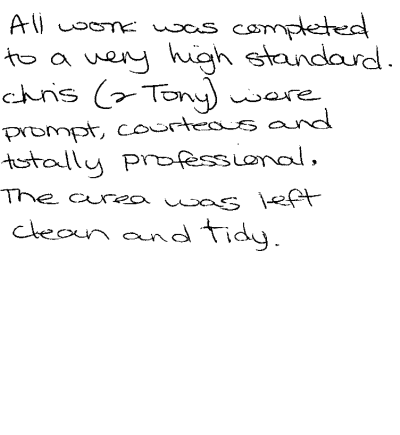 All work was completed
to a very high standard.
chris (& Tony) were
prompt, courteous and
totally professional.
The area was left
clean and tidy.